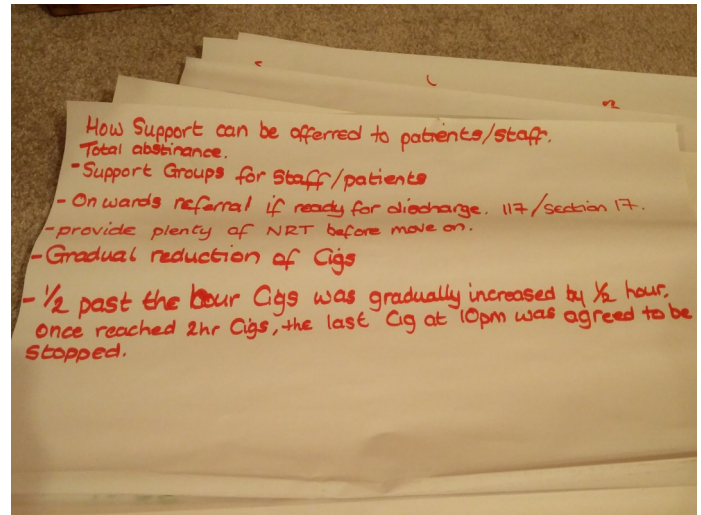 How Support can be offerred to patients/staff.
Total abstinance.
- Support Groups for Staff/patients
- On wards referral if ready for discharge. 117/Section 17.
- provide plenty of NRT before move on.
- Gradual reduction of Cigs
- 1/2 past the hour Cigs was gradually increased by 1/2 hour.
once reached 2hr Cigs, the last Cig at 10pm was agreed to be
Stopped.